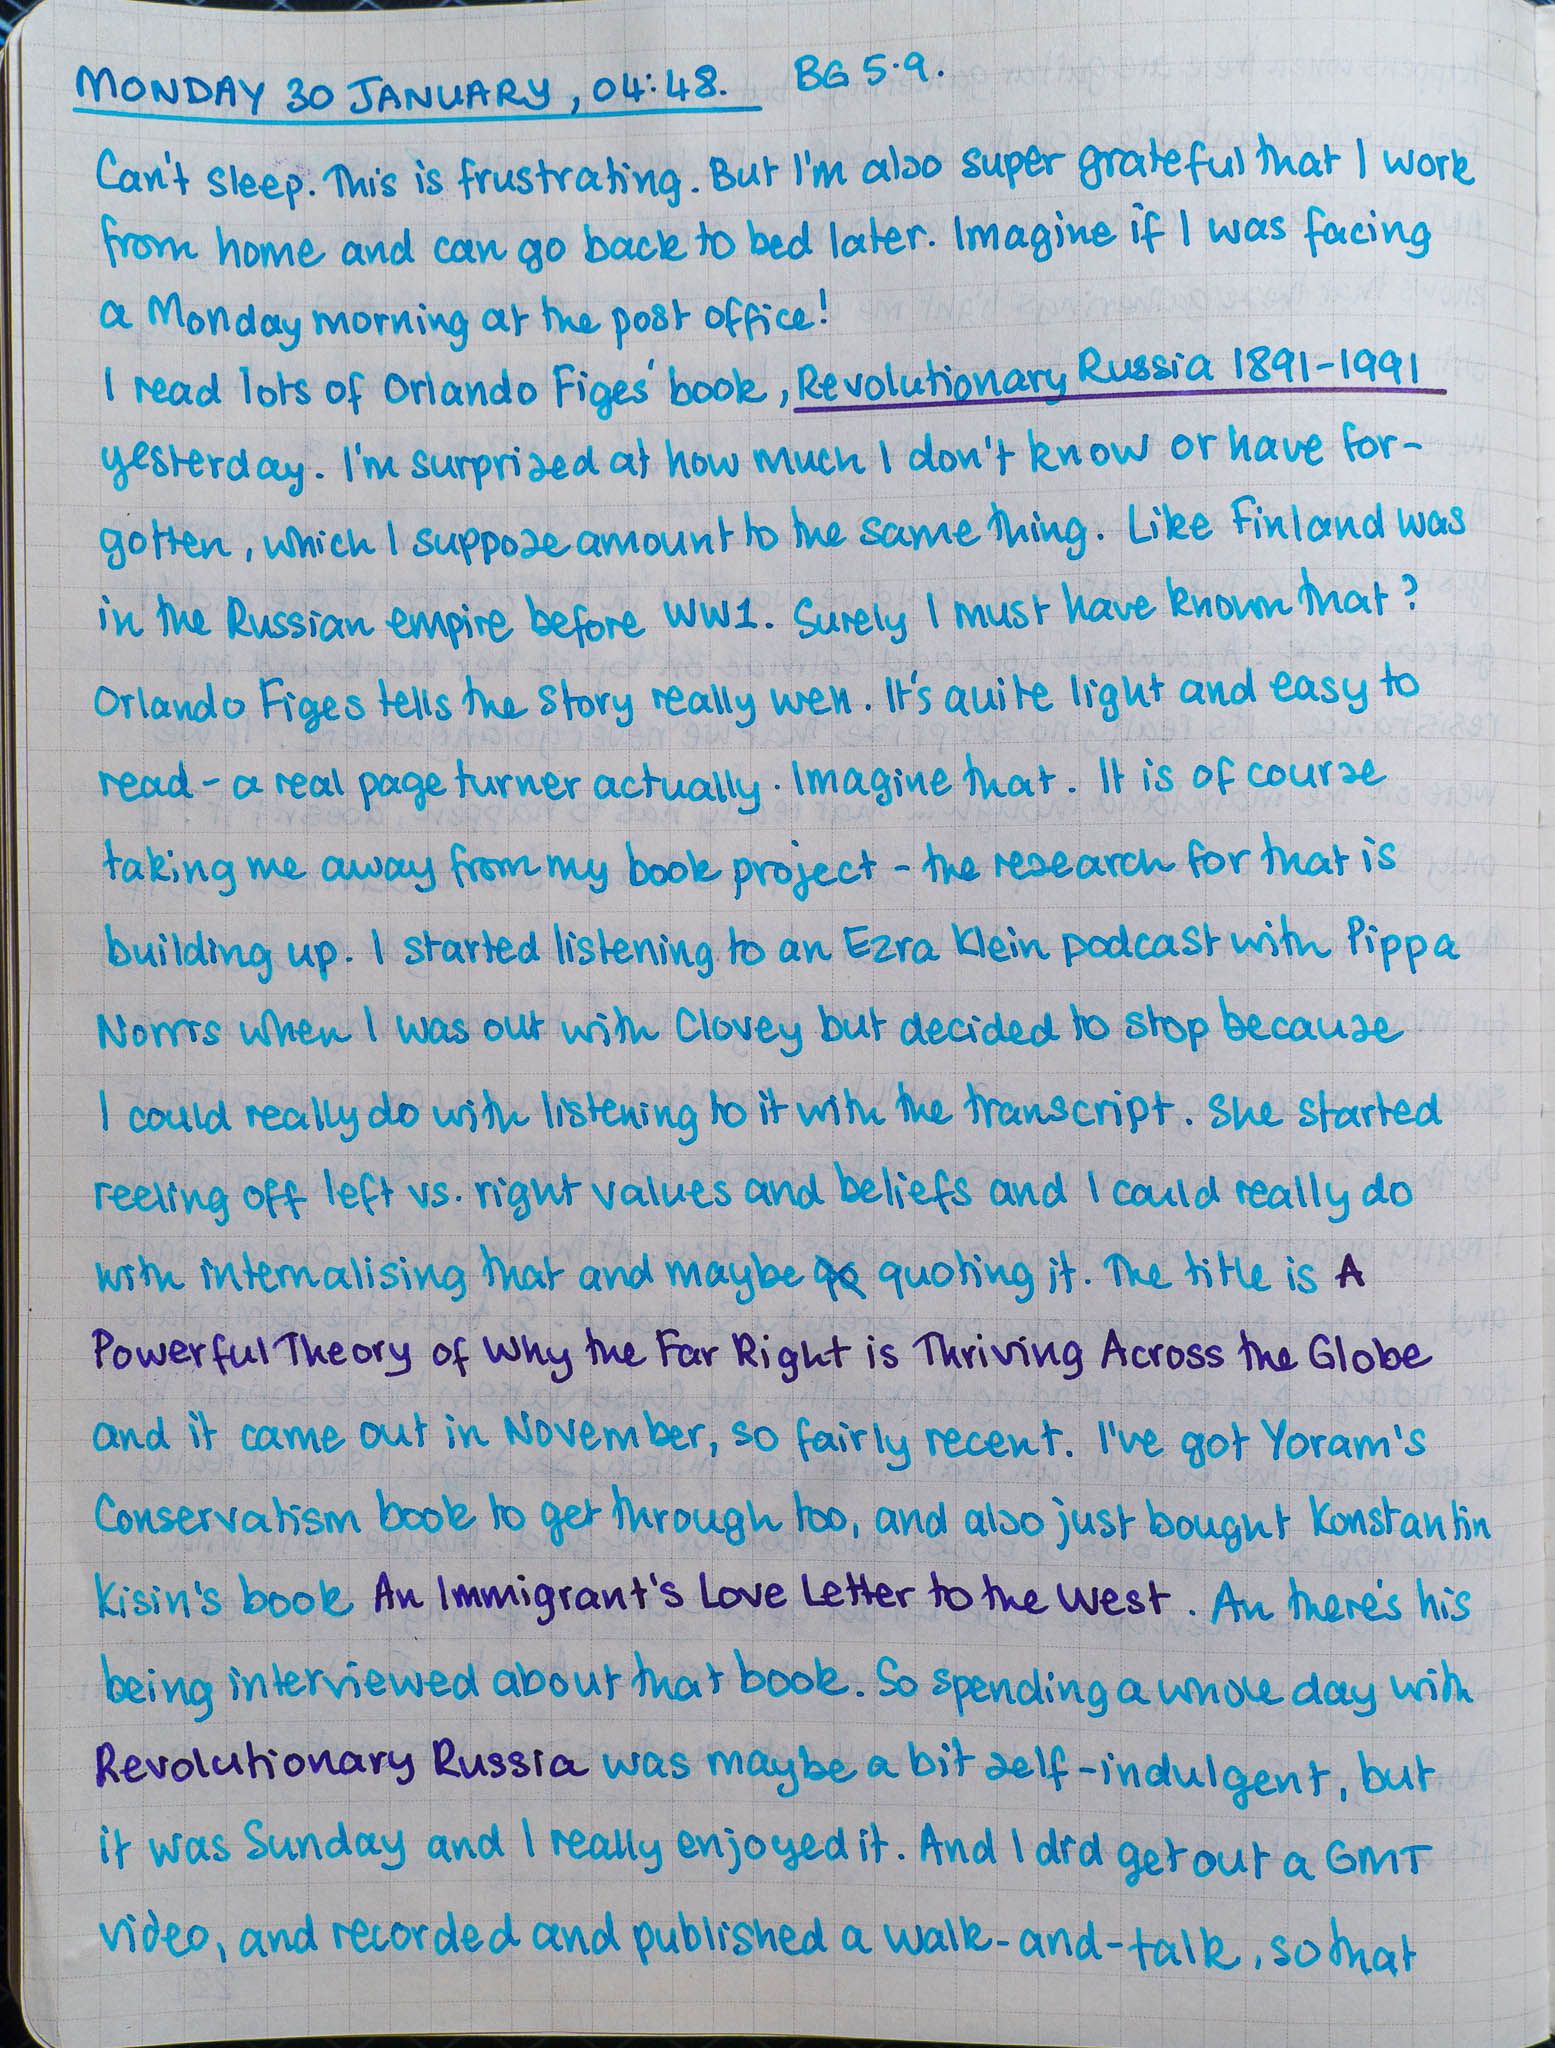 MONDAY 30 JANUARY, 04:48. BG 5.9.
Can't sleep. This is frustrating. But I'm also super grateful that I work
from home and can go back to bed later. Imagine if I was facing
a Monday morning at the post office!
I read lots of Orlando Figes' book, Revolutionary Russia 1891-1991
yesterday. I'm surprised at how much I don't know or have for-
gotten, which I suppose amount to the same thing. Like Finland was
in the Russian empire before WW1. Surely I must have known that?
Orlando Figes tells the story really well. It's quite light and easy to
read - a real page turner actually. Imagine that. It is of course
taking me away from my book project - the research for that is
building up. I started listening to an Ezra Klein podcast with Pippa
Norris when I was out with Clovey but decided to stop because
I could really do with listening to it with the transcript. She started
reeling off left vs. right values and beliefs and I could really do
with internalising that and maybe quoting it. The title is A
Powerful Theory of Why the Far Right is Thriving Across the Globe
and it came out in November, so fairly recent. I've got Yoram's
Conservatism book to get through too, and also just bought Konstantin
Kisin's book An Immigrant's Love Letter to the West. An there's his
being interviewed about that book. So spending a whole day with
Revolutionary Russia was maybe a bit self-indulgent, but
it was Sunday and I really enjoyed it. And I did get out a GMT
video, and recorded and published a walk-and-talk, so that